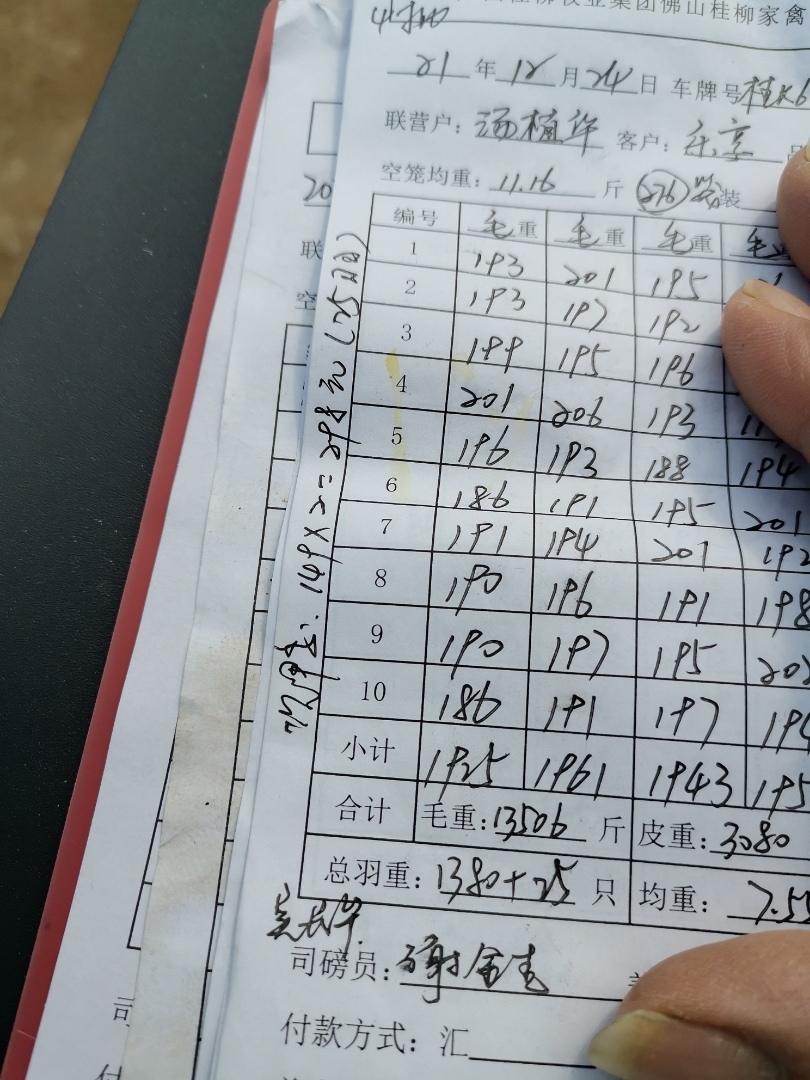 桂柳牧业集团佛山桂柳家禽
21年12月24日 车牌号桂K6
联营户:汤植华 客户:乐享
空笼均重:11.16斤 276 装
编号 毛重 毛重 毛重 毛
1 193 201 195
2 193 197 192
3 199 195 196
4 201 206 193
5 196 193 188 194
6 186 191 195 201
7 191 194 201 192
8 190 196 191 198
9 190 197 195
10 186 191 197
小计 1925 1961 1943
合计 毛重:13506斤 皮重:3080
总羽重:1380+25只 均重:7.55
司磅员:谢金
付款方式:汇
149×2=298元(25只)
20
联
空
司